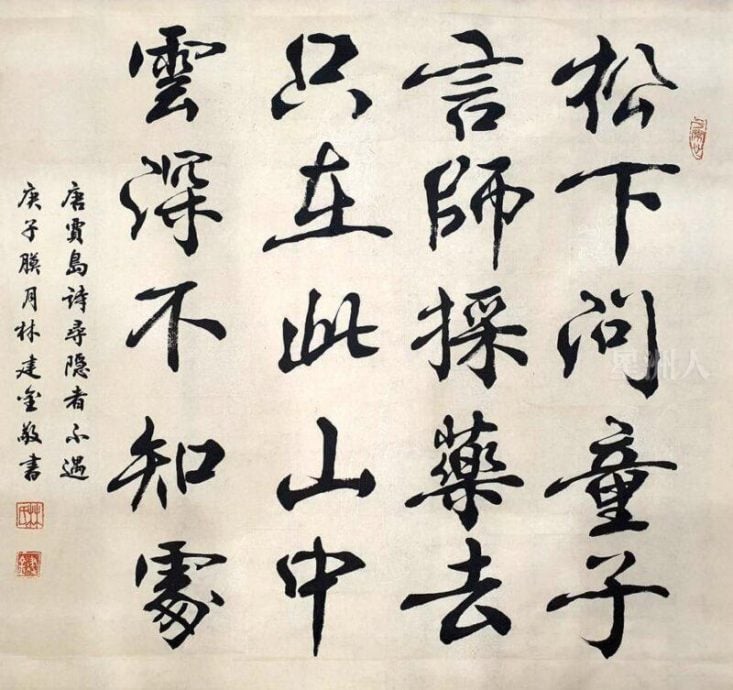 松下问童子
言師採藥去
只在此山中
雲深不知處
唐賈島詩尋隱者不遇
庚子朠月林建金敬書
星洲人